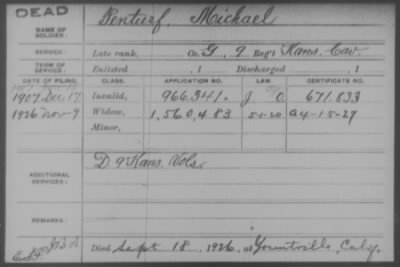 DEAD
NAME OF SOLDIER: Penturf, Michael
SERVICE: Late rank, Co. G, 9 Reg't Kans. Cav
TERM OF SERVICE: Enlisted , 1 Discharged , 1
DATE OF FILING. CLASS. APPLICATION NO. LAW. CERTIFICATE NO.
1907 Dec 17 Invalid, 966,341. J O. 671.833
1926 Nov-9 Widow, 1,560,483 5-1-20 A-4-15-27
Minor,
ADDITIONAL SERVICES: D 9 Kans. Vols.
REMARKS:
Died Sept 18, 1926, at Yountville, Caly.